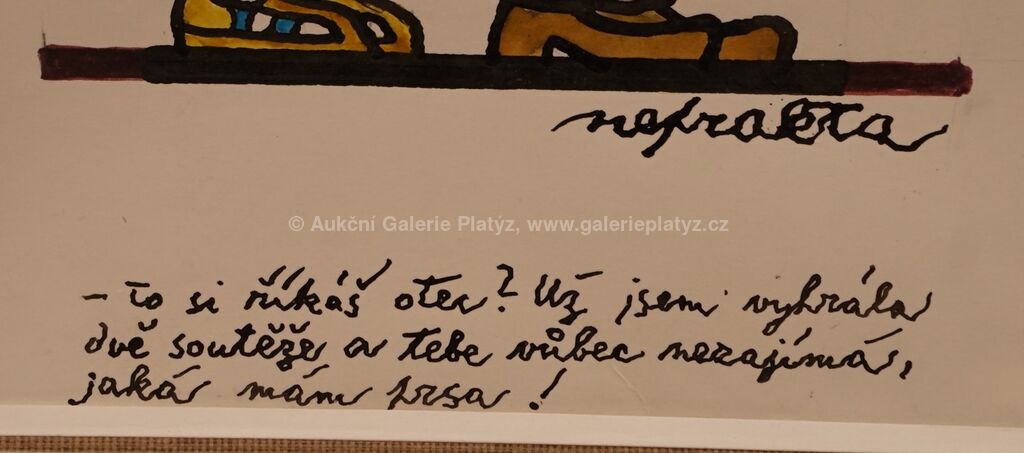 nefrakta
© Aukční Galerie Platýz, www.galerieplatyz.cz
- To si říkáš otec? Už jsem vyhrála
dvě soutěže a tebe vůbec nezajímá,
jaká mám prsa!